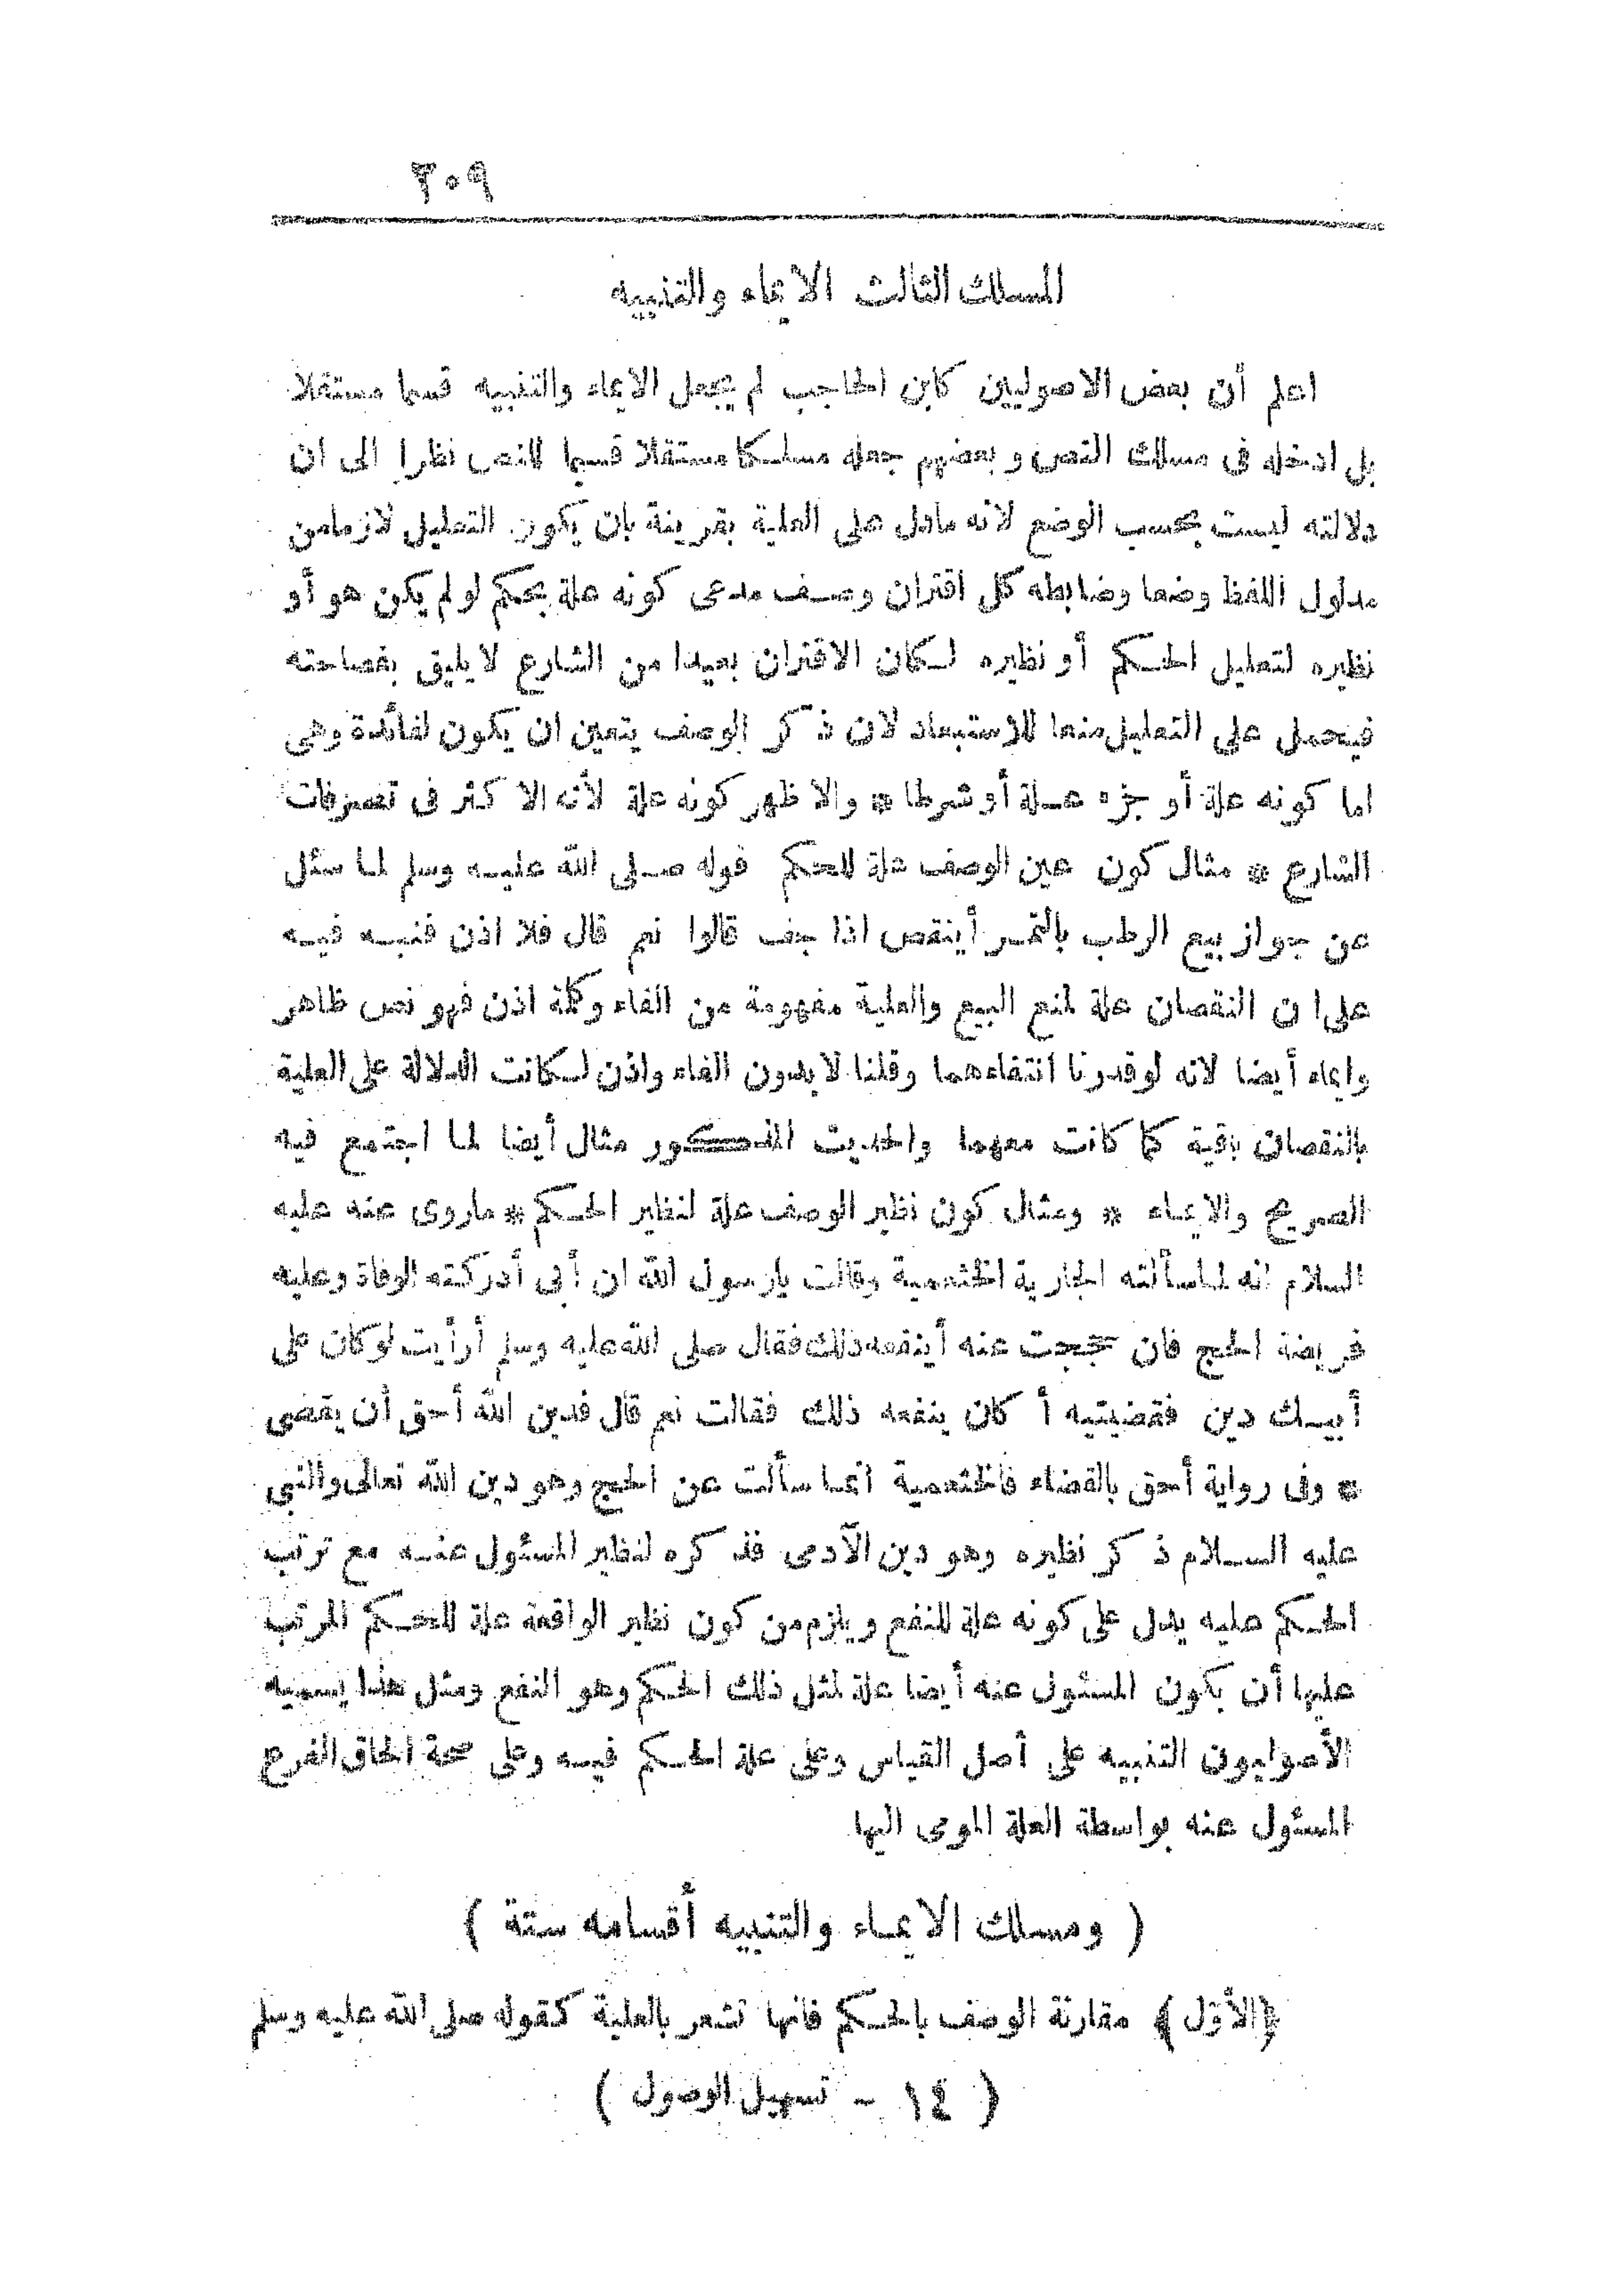 ٣٠٩
المسلك الثالث الايماء والتنبيه
اعلم أن بعض الاصوليين كابن الحاجب لم يجعل الايماء والتنبيه قسما مستقلا
بل ادخله فى مسلك النص وبعضهم جعله مسلكا مستقلا قسيما للنص نظرا الى ان
دلالته ليست بحسب الوضع لانه مادل على العلية بقرينة بان يكون التعليل لازما من
مدلول اللفظ وضعا وضابطه كل اقتران وصف مدعى كونه علة بحكم لو لم يكن هو أو
نظيره لتعليل الحكم أو نظيره لكان الاقتران بعيدا من الشارع لا يليق بفصاحته
فيحمل على التعليل منعا للاستبعاد لان ذكر الوصف يتعين ان يكون لفائدة وهى
اما كونه علة أو جزء علة أو شرطا * والاظهر كونه علة لأنه الاكثر فى تصرفات
الشارع * مثال كون عين الوصف علة للحكم قوله صلى الله عليه وسلم لما سئل
عن جواز بيع الرطب بالتمر أينقص اذا جف قالوا نعم قال فلا اذن فنبه فيه
على ان النقصان علة لمنع البيع والعلية مفهومة من الفاء وكلمة اذن فهو نص ظاهر
وايماء أيضا لانه لو قدرنا انتفاءهما وقلنا لا بدون الفاء واذن لكانت الدلالة على العلية
بالنقصان باقية كما كانت معهما والحديث المذكور مثال أيضا لما اجتمع فيه
الصريح والايماء * ومثال كون نظير الوصف علة لنظير الحكم * ماروى عنه عليه
السلام انه لما سألته الجارية الخثعمية وقالت يا رسول الله ان أبى أدركته الوفاة وعليه
فريضة الحج فان حججت عنه أينفعه ذلك فقال صلى الله عليه وسلم أرأيت لو كان على
أبيك دين فقضيتيه أكان ينفعه ذلك فقالت نعم قال فدين الله أحق أن يقضى
* وفى رواية أحق بالقضاء فالخثعمية انما سألت عن الحج وهو دين الله تعالى والنبى
عليه السلام ذكر نظيره وهو دين الآدمى فذكره لنظير المسئول عنه مع ترتب
الحكم عليه يدل على كونه علة للنفع ويلزم من كون نظير الواقعة علة للحكم المرتب
عليها أن يكون المسئول عنه أيضا علة لمثل ذلك الحكم وهو النفع ومثل هذا يسميه
الأصوليون التنبيه على أصل القياس وعلى علة الحكم فيه وعلى صحة الحاق الفرع
المسئول عنه بواسطة العلة المومى اليها
( ومسلك الايماء والتنبيه أقسامه ستة )
﴿الأول﴾ مقارنة الوصف بالحكم فانها تشعر بالعلية كقوله صلى الله عليه وسلم
( ١٤ - تسهيل الوصول )